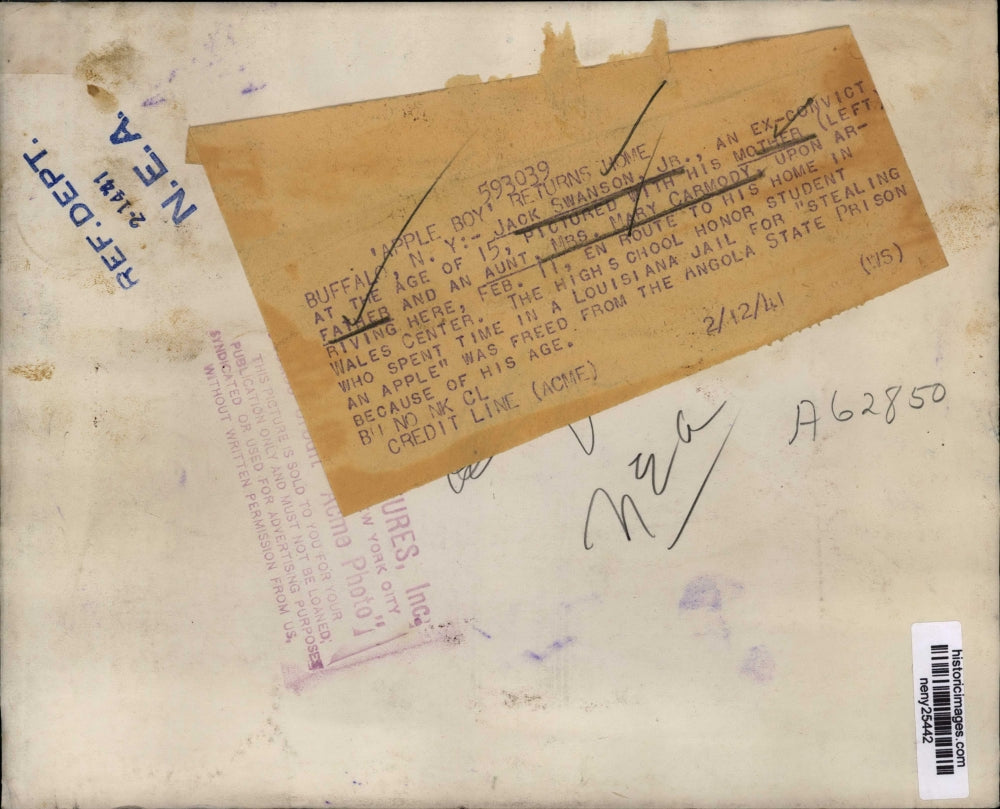 REF. DEPT.
2-14-41
N. E. A.
593039
'APPLE BOY' RETURNS HOME
BUFFALO, N. Y:- JACK SWANSON, JR., AN EX-CONVICT
AT THE AGE OF 15, PICTURED WITH HIS MOTHER (LEFT)
FATHER AND AN AUNT, MRS. MARY CARMODY, UPON AR-
RIVING HERE, FEB. 11, EN ROUTE TO HIS HOME IN
WALES CENTER. THE HIGH SCHOOL HONOR STUDENT
WHO SPENT TIME IN A LOUISIANA JAIL FOR "STEALING
AN APPLE" WAS FREED FROM THE ANGOLA STATE PRISON
BECAUSE OF HIS AGE.
BU NO NK CL
CREDIT LINE (ACME)
2/12/41
(WS)
A62850
nea
URES, Inc.
W YORK CITY
Acme Photo"
THIS PICTURE IS SOLD TO YOU FOR YOUR
PUBLICATION ONLY AND MUST NOT BE LOANED,
SYNDICATED OR USED FOR ADVERTISING PURPOSES
WITHOUT WRITTEN PERMISSION FROM US,
historicimages.com
neny25442